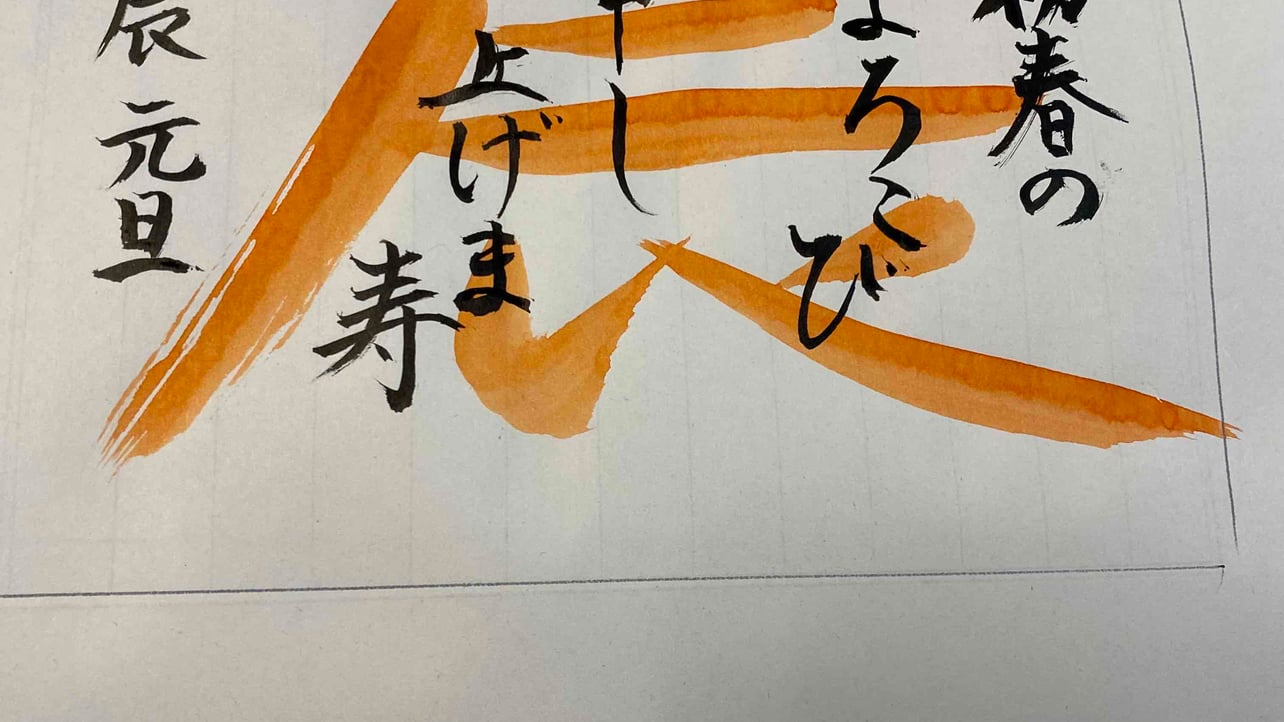 春の
よろこび
申し
上げま
寿
辰 元旦
辰